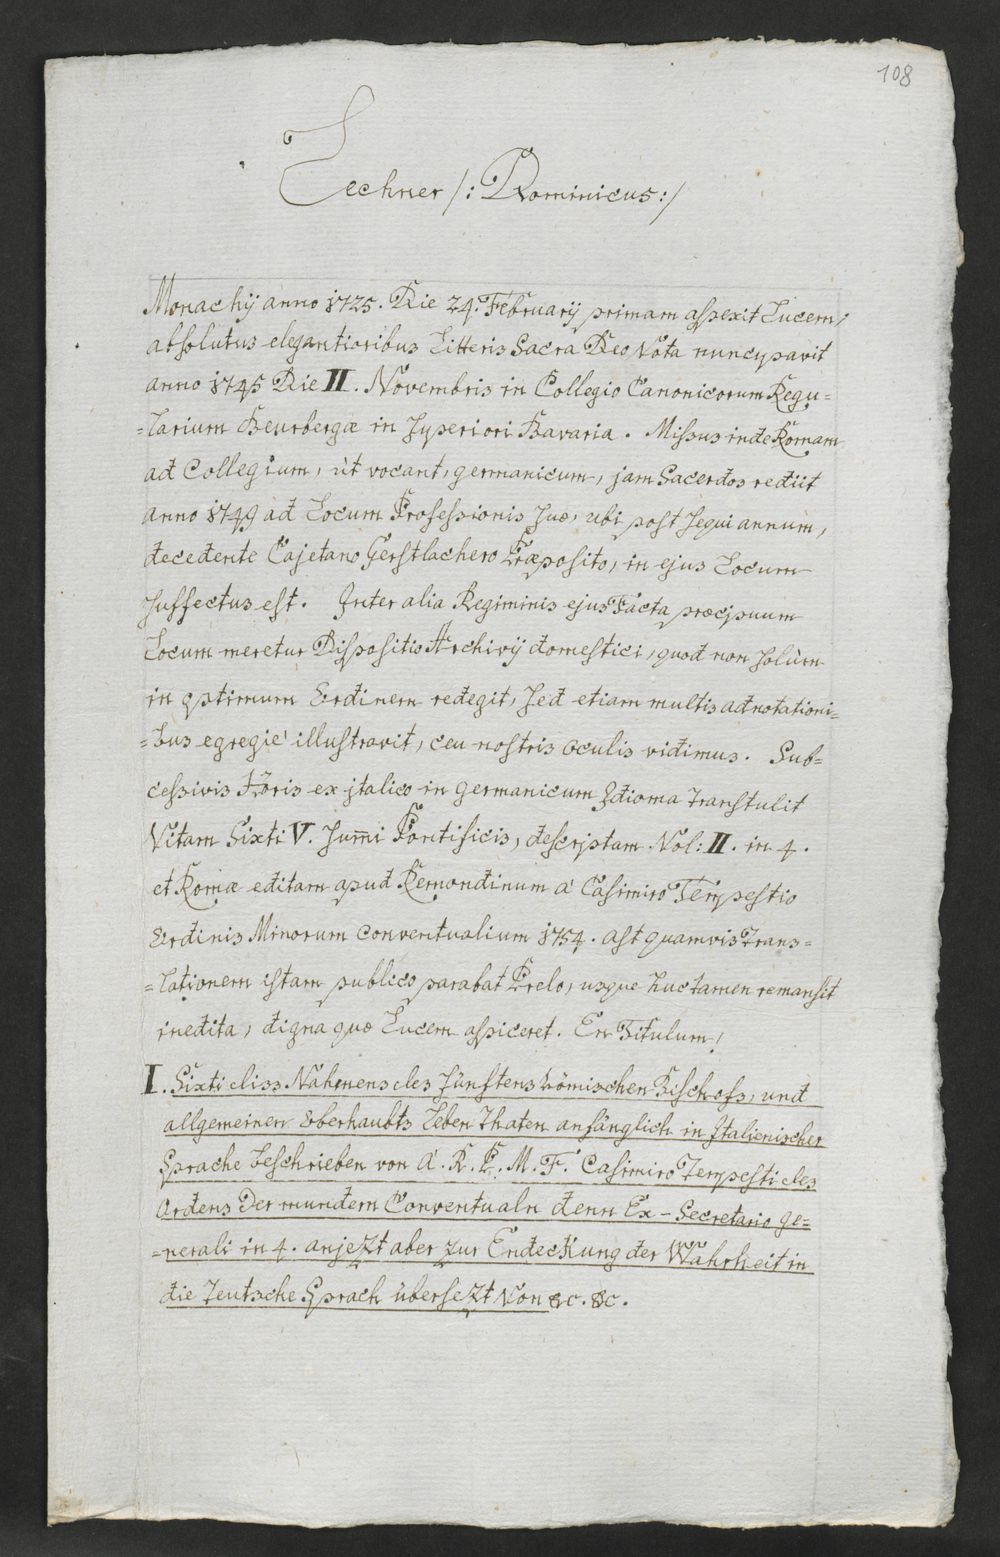 108
Lechner /: Dominicus :/
Monachij anno 1725. Die 24. Februarij primam aspexit Lucem,
absolutus elegantioribus Litteris Sacra Deo Vota nuncupavit
anno 1745 Die II. Novembris in Collegio Canonicorum Regu=
=larium Beurbergæ in Superiori Bavaria. Missus inde Romam
ad Collegium, ùt vocant, germanicum, jam Sacerdos rediit
anno 1749 ad Locum Professionis suæ, ubi post sequi annum,
decedente Cajetano Gerstlachero Præposito, in ejus Locum
suffectus est. Inter alia Regiminis ejus Facta præcipuum
Locum meretur Dispositio Archivij domestici, quod non solùm
in optimum Ordinem redegit, sed etiam multis adnotationi=
=bus egregie illustravit, ceu nostris oculis vidimus. Sub=
cessivis Horis ex jtalico in germanicum Idioma transtulit
Vitam Sixti V. summi Pontificis, descriptam Vol: II. in 4.
et Romæ editam apud Remondinum à Casimiro Tempestio
Ordinis Minorum Conventualium 1754. ast quamvis Trans=
=lationem istam publico parabat Prelo, usque huc tamen remansit
inedita, digna quæ Lucem aspiceret. En Titulum!
I. Sixti diss Nahmens des Fünftens Römischen Bischofs, und
allgemeinen Oberhaubts Leben Thaten anfänglich in Italienischer
Sprache beschrieben von A. R. P. M. F. Casimiro Tempesti des
Ordens Der mundern Conventualn denn Ex-Secretario ge=
=nerali in 4. anjezt aber zur Endeckung der Wahrheit in
die Teutsche Sprach übersezt von &c. &c.